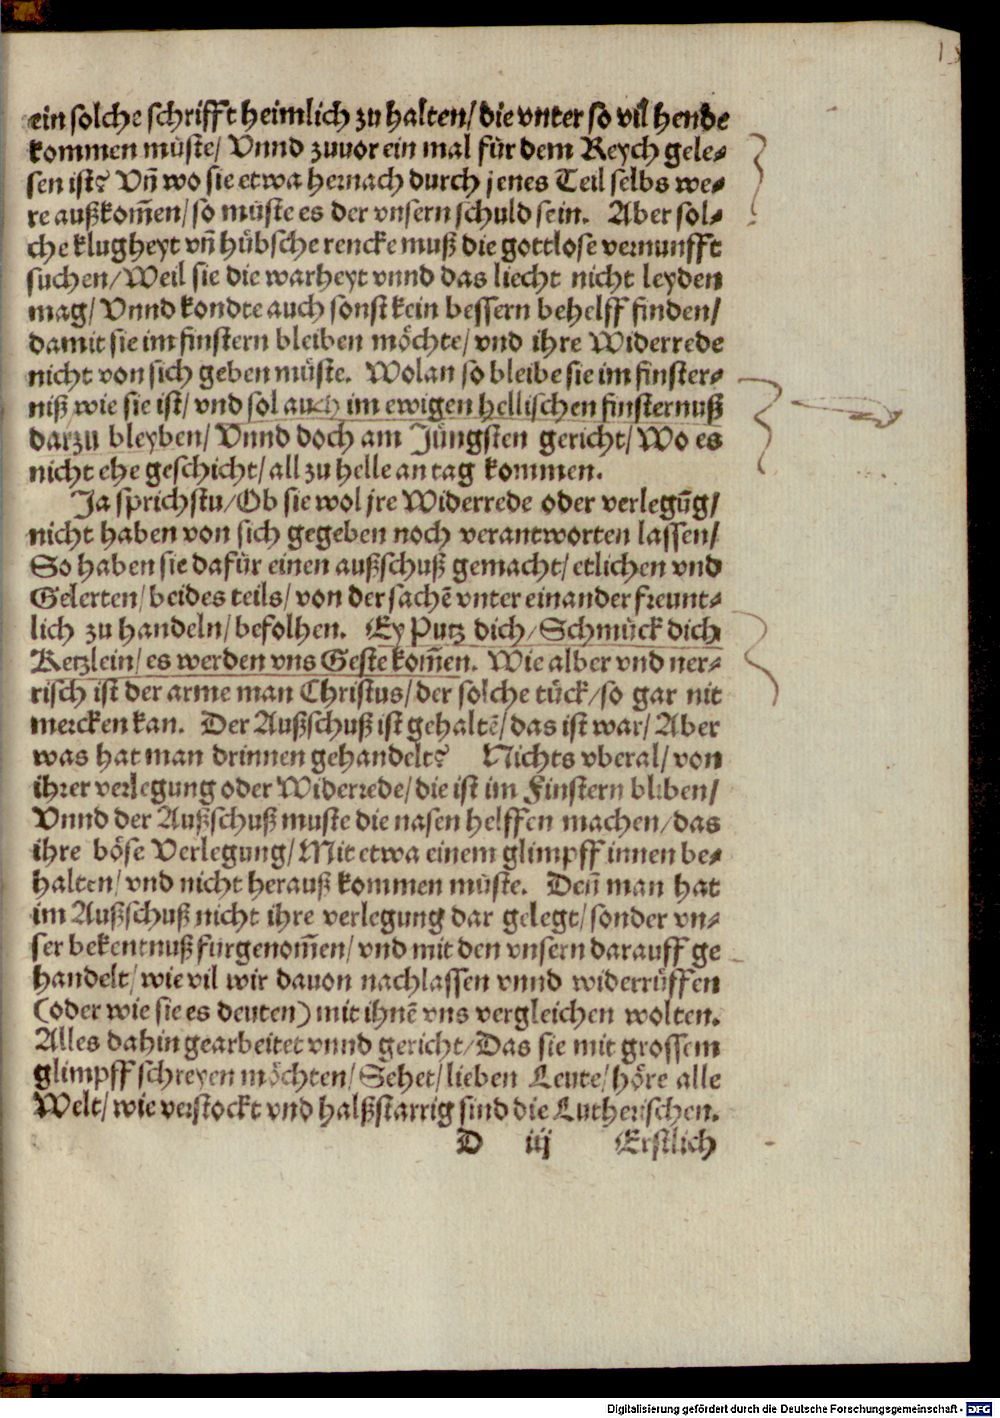 ein solche schrifft heimlich zu halten/ die vnter so vil hende
kommen müste/ Vnnd zuuor ein mal für dem Reych gele⸗
sen ist? Vñ wo sie etwa hernach durch jenes Teil selbs we⸗
re außkom̃en/ so müste es der vnsern schuld sein. Aber sol⸗
che klugheyt vñ hübsche rencke muß die gottlose vernunfft
suchen/ Weil sie die warheyt vnnd das liecht nicht leyden
mag/ Vnnd kondte auch sonst kein bessern behelff finden/
damit sie im finstern bleiben möchte/ vnd ihre Widerrede
nicht von sich geben müste. Wolan so bleibe sie im finster⸗
niß wie sie ist/ vnd sol auch im ewigen hellischen finsternuß
darzu bleyben/ Vnnd doch am Jüngsten gericht/ Wo es
nicht ehe geschicht/ all zu helle an tag kommen.
Ja sprichstu/ Ob sie wol jre Widerrede oder verlegũg/
nicht haben von sich gegeben noch verantworten lassen/
So haben sie dafür einen außschuß gemacht/ etlichen vnd
Gelerten/ beides teils/ von der sachẽ vnter einander freunt⸗
lich zu handeln/ befolhen. Ey Putz dich/ Schmück dich
Ketzlein/ es werden vns Geste kom̃en. Wie alber vnd ner⸗
risch ist der arme man Christus/ der solche tück/ so gar nit
mercken kan. Der Außschuß ist gehaltẽ/ das ist war/ Aber
was hat man drinnen gehandelt? Nichts vberal/ von
ihrer verlegung oder Widerrede/ die ist im Finstern bliben/
Vnnd der Außschuß muste die nasen helffen machen/ das
ihre böse Verlegung/ Mit etwa einem glimpff innen be⸗
halten/ vnd nicht herauß kommen müste. Deñ man hat
im Außschuß nicht ihre verlegung dar gelegt/ sonder vn⸗
ser bekentnuß fürgenom̃en/ vnd mit den vnsern darauff ge
handelt/ wie vil wir dauon nachlassen vnnd widerrüffen
(oder wie sie es deuten) mit ihnẽ vns vergleichen wolten.
Alles dahin gearbeitet vnnd gericht/ Das sie mit grossem
glimpff schreyen möchten/ Sehet/ lieben Leute/ höre alle
Welt/ wie verstockt vnd halßstarrig sind die Lutherischen.
D iij Erstlich
Digitalisierung gefördert durch die Deutsche Forschungsgemeinschaft - DFG